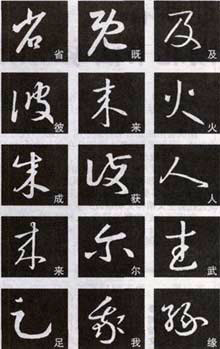 省 既 及
彼 来 火
成 获 人
来 尔 武
足 我 缘